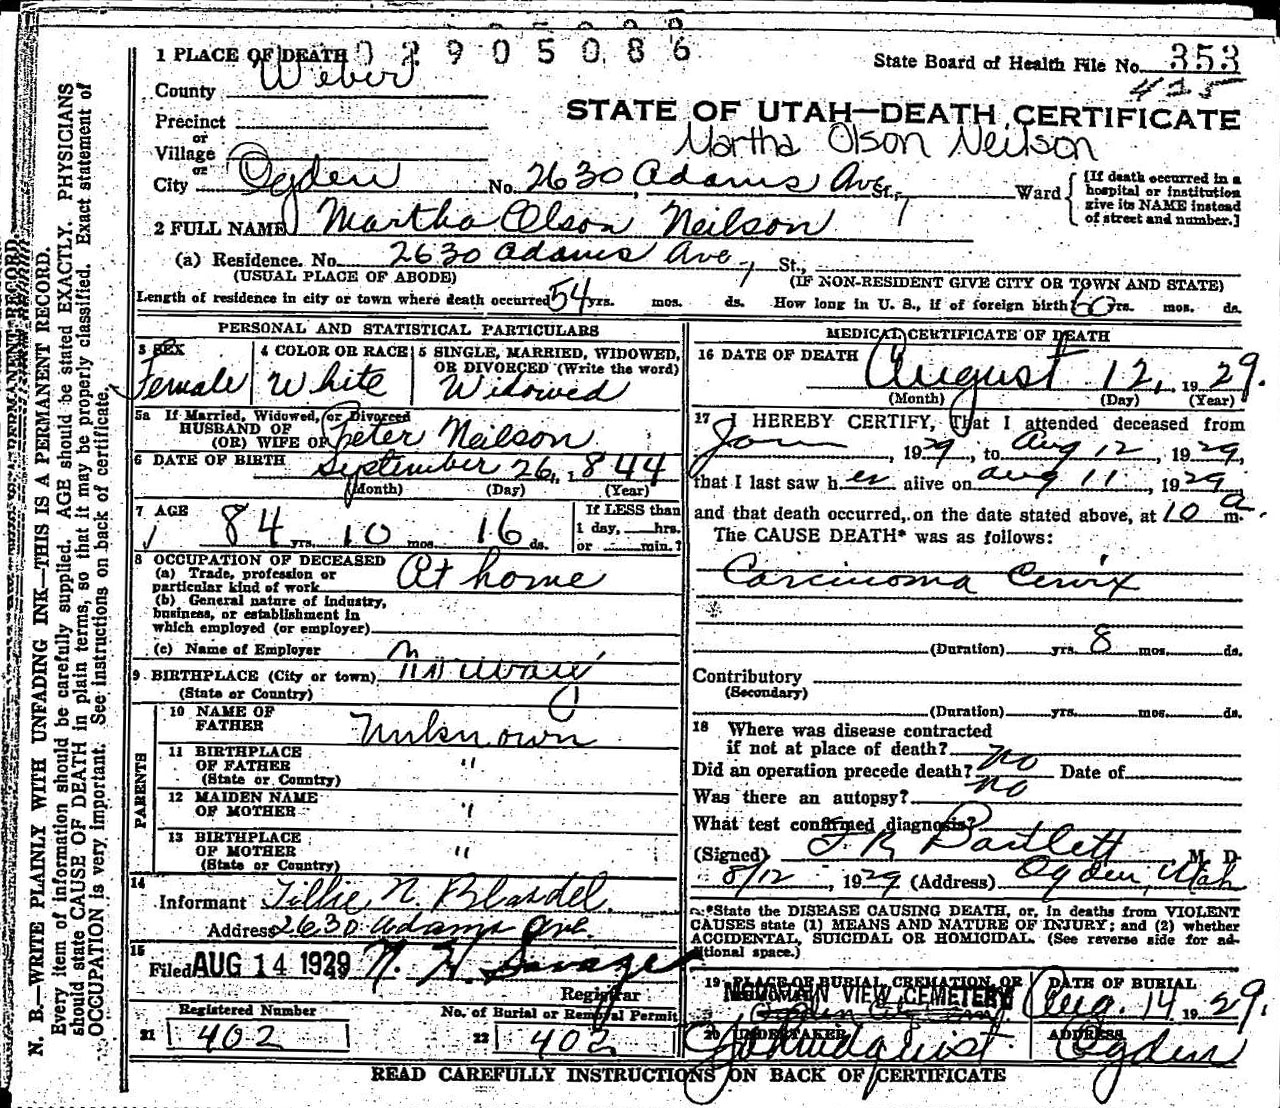 1 PLACE OF DEATH 0 2 9 0 5 0 8 6
State Board of Health File No. 353
425
County Weber
STATE OF UTAH—DEATH CERTIFICATE
Precinct
or
Martha Olson Neilson
Village
or
City Ogden No. 2630 Adams Ave St., Ward
[If death occurred in a hospital or institution give its NAME instead of street and number.]
2 FULL NAME Martha Olson Neilson
(a) Residence. No. 2630 Adams Ave, St.,
(USUAL PLACE OF ABODE) (IF NON-RESIDENT GIVE CITY OR TOWN AND STATE)
Length of residence in city or town where death occurred 54 yrs. mos. ds. How long in U. S., if of foreign birth? 60 yrs. mos. ds.
PERSONAL AND STATISTICAL PARTICULARS
3 SEX 4 COLOR OR RACE 5 SINGLE, MARRIED, WIDOWED,
OR DIVORCED (Write the word)
Female White Widowed
5a If Married, Widowed, or Divorced
HUSBAND OF
(OR) WIFE OF Peter Neilson
6 DATE OF BIRTH September 26, 1844
(Month) (Day) (Year)
7 AGE If LESS than
84 yrs. 10 mos. 16 ds. 1 day, hrs.
or min.?
8 OCCUPATION OF DECEASED
(a) Trade, profession or
particular kind of work At home
(b) General nature of industry,
business, or establishment in
which employed (or employer)
(c) Name of Employer
9 BIRTHPLACE (City or town) Norway
(State or Country)
PARENTS
10 NAME OF
FATHER Unknown
11 BIRTHPLACE
OF FATHER "
(State or Country)
12 MAIDEN NAME
OF MOTHER "
13 BIRTHPLACE
OF MOTHER "
(State or Country)
14
Informant Tillie N. Blasdel
Address 2630 Adams Ave.
15
Filed AUG 14 1929 N. H. Savage
Registrar
Registered Number No. of Burial or Removal Permit
21 402 22 402
MEDICAL CERTIFICATE OF DEATH
16 DATE OF DEATH August 12, 1929.
(Month) (Day) (Year)
17 I HEREBY CERTIFY, That I attended deceased from
Jan, 1929, to Aug 12, 1929,
that I last saw her alive on Aug 11, 1929
and that death occurred, on the date stated above, at 10 a m.
The CAUSE DEATH* was as follows:
Carcinoma Cervix
(Duration) yrs. 8 mos. ds.
Contributory
(Secondary)
(Duration) yrs. mos. ds.
18 Where was disease contracted
if not at place of death?
Did an operation precede death? No Date of
Was there an autopsy? No
What test confirmed diagnosis?
(Signed) Bartlett M. D.
8/12, 1929 (Address) Ogden, Utah
*State the DISEASE CAUSING DEATH, or, in deaths from VIOLENT
CAUSES state (1) MEANS AND NATURE OF INJURY; and (2) whether
ACCIDENTAL, SUICIDAL OR HOMICIDAL. (See reverse side for ad-
ditional space.)
19 PLACE OF BURIAL CREMATION, OR DATE OF BURIAL
MOUNTAIN VIEW CEMETERY Aug. 14 1929.
20 UNDERTAKER ADDRESS
Ogden
READ CAREFULLY INSTRUCTIONS ON BACK OF CERTIFICATE
N. B.—WRITE PLAINLY WITH UNFADING INK—THIS IS A PERMANENT RECORD.
Every item of information should be carefully supplied. AGE should be stated EXACTLY. PHYSICIANS
should state CAUSE OF DEATH in plain terms, so that it may be properly classified. Exact statement of
OCCUPATION is very important. See instructions on back of certificate.